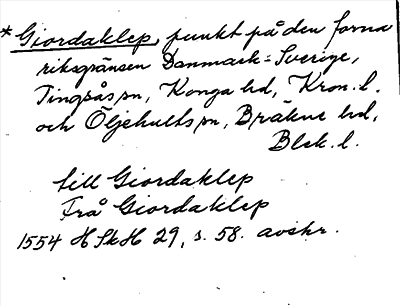 * Giordaklep, punkt på den forna
riksgränsen Danmark=Sverige,
Tingsås sn, Konga hd, Kron. l.
och Öljehults sn, Bräkne hd,
Blek. l.
till Giordaklep
Frå Giordaklep
1554 HSkH 29, s. 58. avskr.